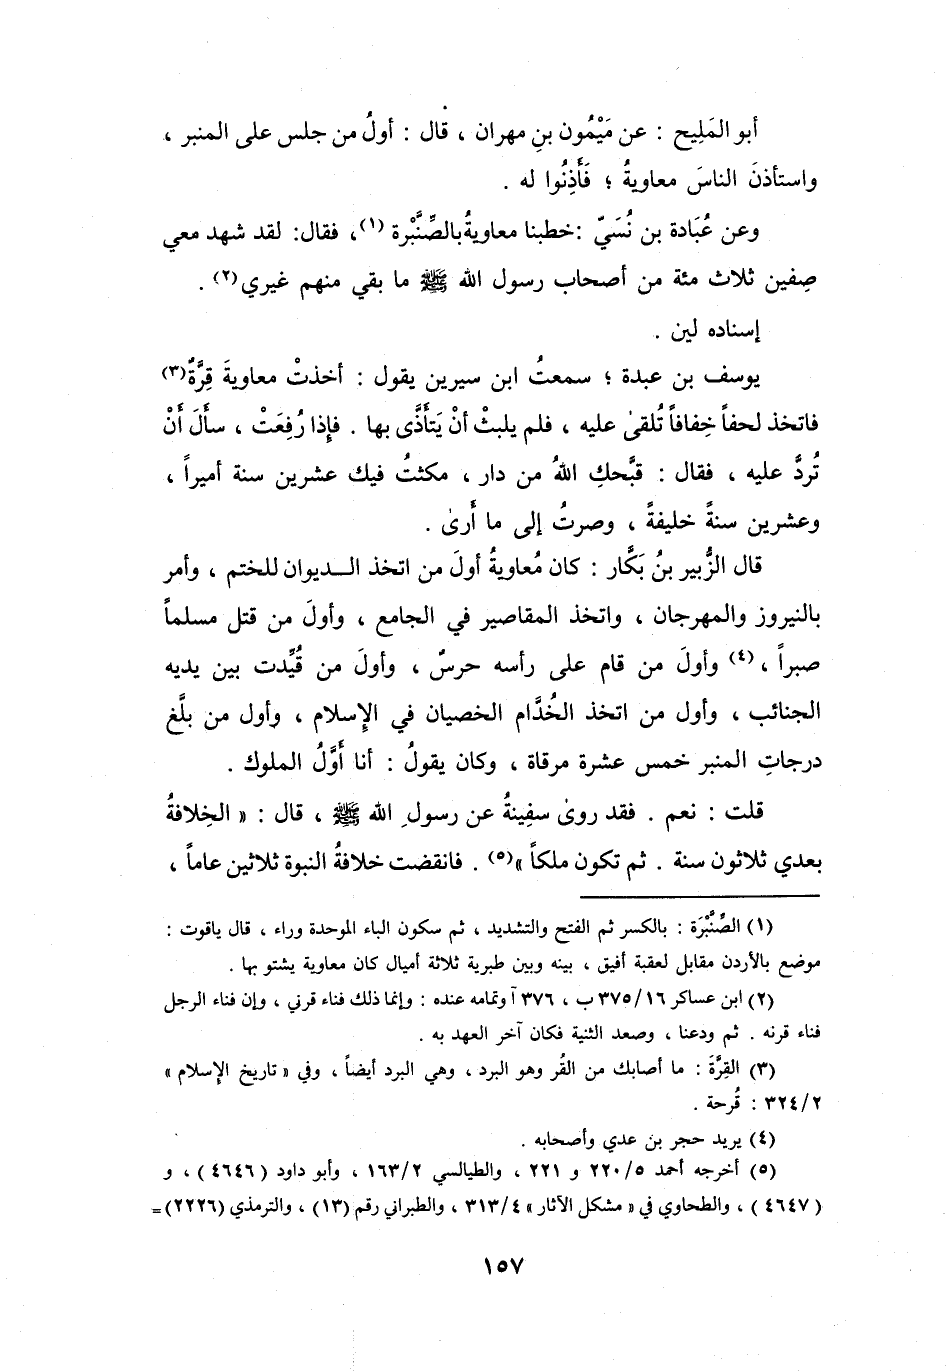 أبو المَلِيح : عن مَيْمُون بنِ مهران ، قال : أولُ من جلس على المنبر ،
واستأذنَ الناسَ معاويةُ ؛ فَأَذِنُوا له .
وعن عُبَادة بن نُسَيّ : خطبنا معاويةُ بالصِّنَّبْرة (١)، فقال: لقد شهد معي
صِفين ثلاث مئة من أصحاب رسول الله ﷺ ما بقي منهم غيري(٢) .
إسناده لين .
يوسف بن عبدة ؛ سمعتُ ابن سيرين يقول : أخذتْ معاويةَ قِرَّةٌ(٣)
فاتخذ لحفاً خِفافاً تُلقىٰ عليه ، فلم يلبثْ أنْ يَتَأَذَّى بها . فإِذا رُفِعَتْ ، سأَلَ أَنْ
تُردَّ عليه ، فقال : قبَّحكِ اللهُ من دار ، مكثتُ فيك عشرين سنة أميراً ،
وعشرين سنةً خليفةً ، وصرتُ إلى ما أَرىٰ .
قال الزُّبير بنُ بَكَّار : كان مُعاويةُ أولَ من اتخذ الــديوان للختم ، وأمر
بالنيروز والمهرجان ، واتخذ المقاصير في الجامع ، وأولَ من قتل مسلماً
صبراً ،(٤) وأولَ من قام على رأسه حرسٌ ، وأولَ من قُيِّدت بين يديه
الجنائب ، وأول من اتخذ الخُدَّام الخصيان في الإِسلام ، وأول من بلَّغ
درجاتِ المنبر خمس عشرة مرقاة ، وكان يقولُ : أنا أَوَّلُ الملوك .
قلت : نعم . فقد روىٰ سفِينةُ عن رسولِ الله ﷺ ، قال : « الخِلافةُ
بعدي ثلاثون سنة . ثم تكون ملكاً »(٥) . فانقضت خلافةُ النبوة ثلاثين عاماً ،
(١) الصِّنَّبْرَة : بالكسر ثم الفتح والتشديد ، ثم سكون الباء الموحدة وراء ، قال ياقوت :
موضع بالأردن مقابل لعقبة أفيق ، بينه وبين طبرية ثلاثة أميال كان معاوية يشتو بها .
(٢) ابن عساكر ٣٧٥/١٦ ب ، ٣٧٦ آ وتمامه عنده : وإنما ذلك فناء قرني ، وإن فناء الرجل
فناء قرنه . ثم ودعنا ، وصعد الثنية فكان آخر العهد به .
(٣) القِرَّةَ : ما أصابك من القُر وهو البرد ، وهي البرد أيضاً ، وفي « تاريخ الإِسلام »
٣٢٤/٢ : قُرحة .
(٤) يريد حجر بن عدي وأصحابه .
(٥) أخرجه أحمد ٢٢٠/٥ و ٢٢١ ، والطيالسي ١٦٣/٢ ، وأبو داود (٤٦٤٦) ، و
(٤٦٤٧) ، والطحاوي في « مشكل الآثار » ٣١٣/٤ ، والطبراني رقم (١٣) ، والترمذي (٢٢٢٦)=
١٥٧